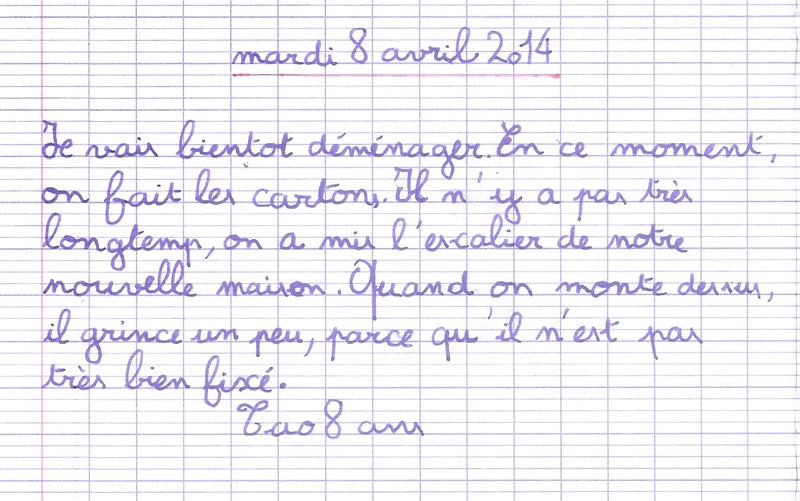 mardi 8 avril 2014
Je vais bientot déménager. En ce moment,
on fait les cartons. Il n'y a pas très
longtemps, on a mis l'escalier de notre
nouvelle maison. Quand on monte dessus,
il grince un peu, parce qu'il n'est pas
très bien fixé.
Tao 8 ans